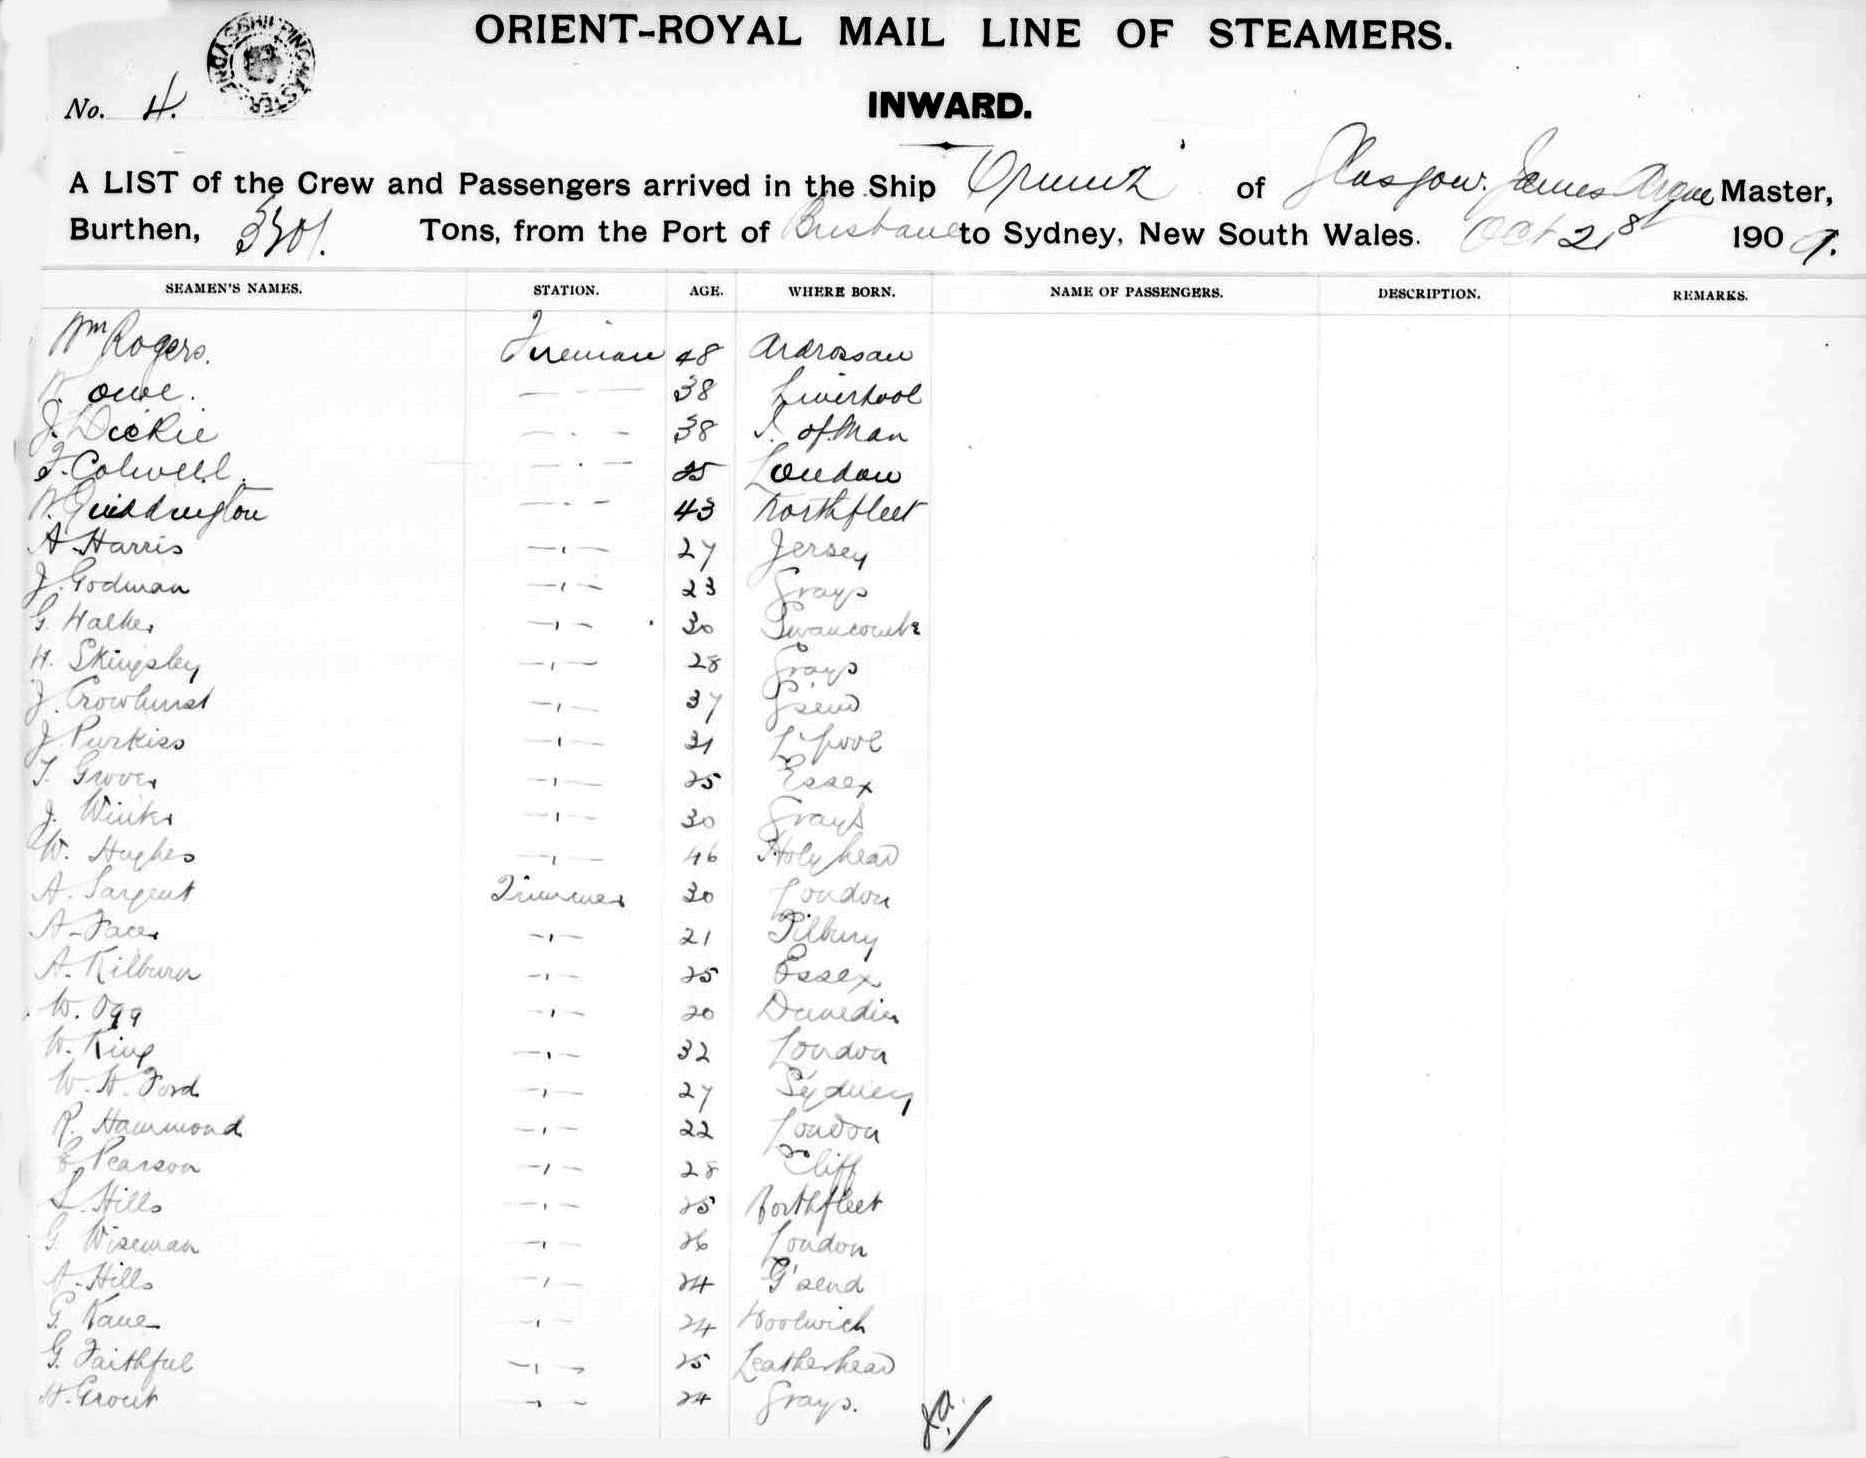 ORIENT-ROYAL MAIL LINE OF STEAMERS.
No. 4.
INWARD.
A LIST of the Crew and Passengers arrived in the Ship Ormuz of Glasgow. James Master,
Burthen, Tons, from the Port of Brisbane to Sydney, New South Wales. Oct 21st 1909.
SEAMEN'S NAMES. STATION. AGE. WHERE BORN. NAME OF PASSENGERS. DESCRIPTION. REMARKS.
Wm Rogers. Fireman 48 Ardrossan
38 Liverpool
J. Dickie 38 I. of Man
F. Colwell. 25 London
W. 43 Northfleet
A. Harris —"— 27 Jersey
J. Godman —"— 23 Grays
G. Walker —"— 30 Swanscombe
H. Skingsley —"— 28 Grays
J. Crowhurst —"— 37 G'send
J. Purkiss —"— 31 L'pool
T. Grover —"— 25 Essex
J. —"— 30 Grays
W. Hughes —"— 46 Holyhead
A. Sargent Trimmer 30 London
A. Facer —"— 21 Tilbury
A. Kilburn —"— 25 Essex
W. Ogg —"— 20 Dunedin
W. King —"— 32 London
W. H. Ford —"— 27 Sydney
R. Hammond —"— 22 London
E Pearson —"— 28 Cliff
L. Hills —"— 25 Northfleet
G. Wiseman —"— 26 London
A. Hills —"— 24 G'send
G. Kane —"— 24 Woolwich
G. Faithful —"— 25 Leatherhead
H. Grout —"— 24 Grays.